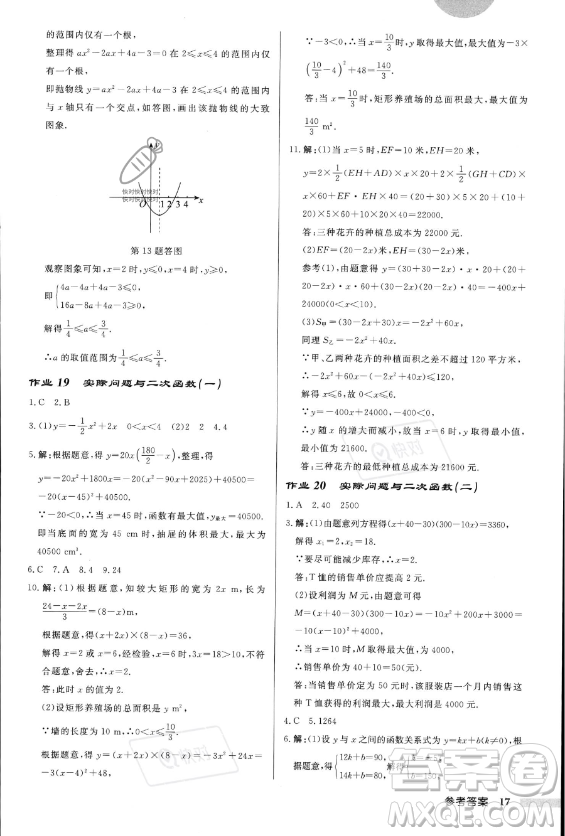 的范围内仅有一个根,
整理得 ax²-2ax+4a-13=0 在 2≤x≤4 的范围内
仅有一个根,
即抛物线 y=ax²-2ax+4a-13 在 2≤x≤4 的范围内
与 x 轴只有一个交点,如答图,画出该抛物线的大致
图象.
y
快对快对快对
快对快对快对
O 1 2 3 4 x
第13题答图
观察图象可知,x=2 时,y≤0,x=4 时,y≥0,
即{4a-4a+4a-3≤0,
16a-8a+4a-3≥0,
解得 1/4≤a≤3/4.
∴a 的取值范围为 1/4≤a≤3/4.
作业 19 实际问题与二次函数(一)
1.C 2.B
3.(1)y=-1/2x²+2x 0<x<4 (2)2 2 4.4
5.解:根据题意,得 y=20x(180/2-x),整理,得
y=-20x²+1800x=-20(x²-90x+2025)+40500
=-20(x-45)²+40500.
∵-20<0,∴当 x=45 时,函数有最大值,y最大=40500.
即当底面的宽度为 45 cm 时,抽屉的体积最大,为
40500 cm³.
6.C 7.A 8.4 9.24
10.解:(1)根据题意,知较大矩形的宽为 2x m,长为
(24-x-2x)/3=(8-x)m,
根据题意,得(x+2x)×(8-x)=36,
解得 x=2 或 x=6,经检验,x=6 时,3x=18>10,不符
合题意,舍去,∴x=2.
答:此时 x 的值为 2.
(2)设矩形养殖场的总面积是 y m²,
∵墙的长度为 10,∴0<3x≤10,∴0<x≤10/3.
根据题意,得 y=(x+2x)×(8-x)=-3x²+24x
=-3(x-4)²+48,
∵-3<0,∴当 x=10/3 时,y 取得最大值,最大值为-3×
(10/3-4)²+48=140/3.
答:当 x=10/3 时,矩形养殖场的总面积最大,最大值为
140/3 m².
11.解:(1)当 x=5 时,EF=10 米,EH=20 米,
y=2×1/2(EH+AD)×20x+2×1/2(GH+CD)×
x×60+EF·EH×40=(20+30)×5×20+(10+
30)×5×60+20×10×40=22000.
答:三种花卉的种植总成本为 22000 元.
(2)EF=(20-2x)米,EH=(30-2x)米,
参考(1),可得 y=(30+30-2x)·x·20+(20+
20-2x)·x·60+(30-2x)(20-2x)·40=-400x+
24000(0<x<10).
答:三种花卉的最低种植总成本为 21600 元.
作业 20 实际问题与二次函数(二)
1.A 2.40 2500
3.解:(1)由题意列方程得(x+40-30)(300-10x)=3360,
解得 x₁=2,x₂=18.
∵要尽可能减少库存,∴x=2.
答:T 恤的销售单价应提高 2 元.
(2)设利润为 M 元,由题意可得
M=(x+40-30)(300-10x)=-10x²+200x+3000
=-10(x-10)²+4000,
∴当 x=10 时,M 取得最大值为 4000,
∴销售单价为 40+10=50(元).
答:当销售单价定为 50 元时,该服装店一个月内销售这
种 T 恤获得的利润最大,最大利润为 4000 元.
4.C 5.1264
6.解:(1)设 y 与 x 之间的函数关系式为 y=kx+b(k≠0),
参考答案 17